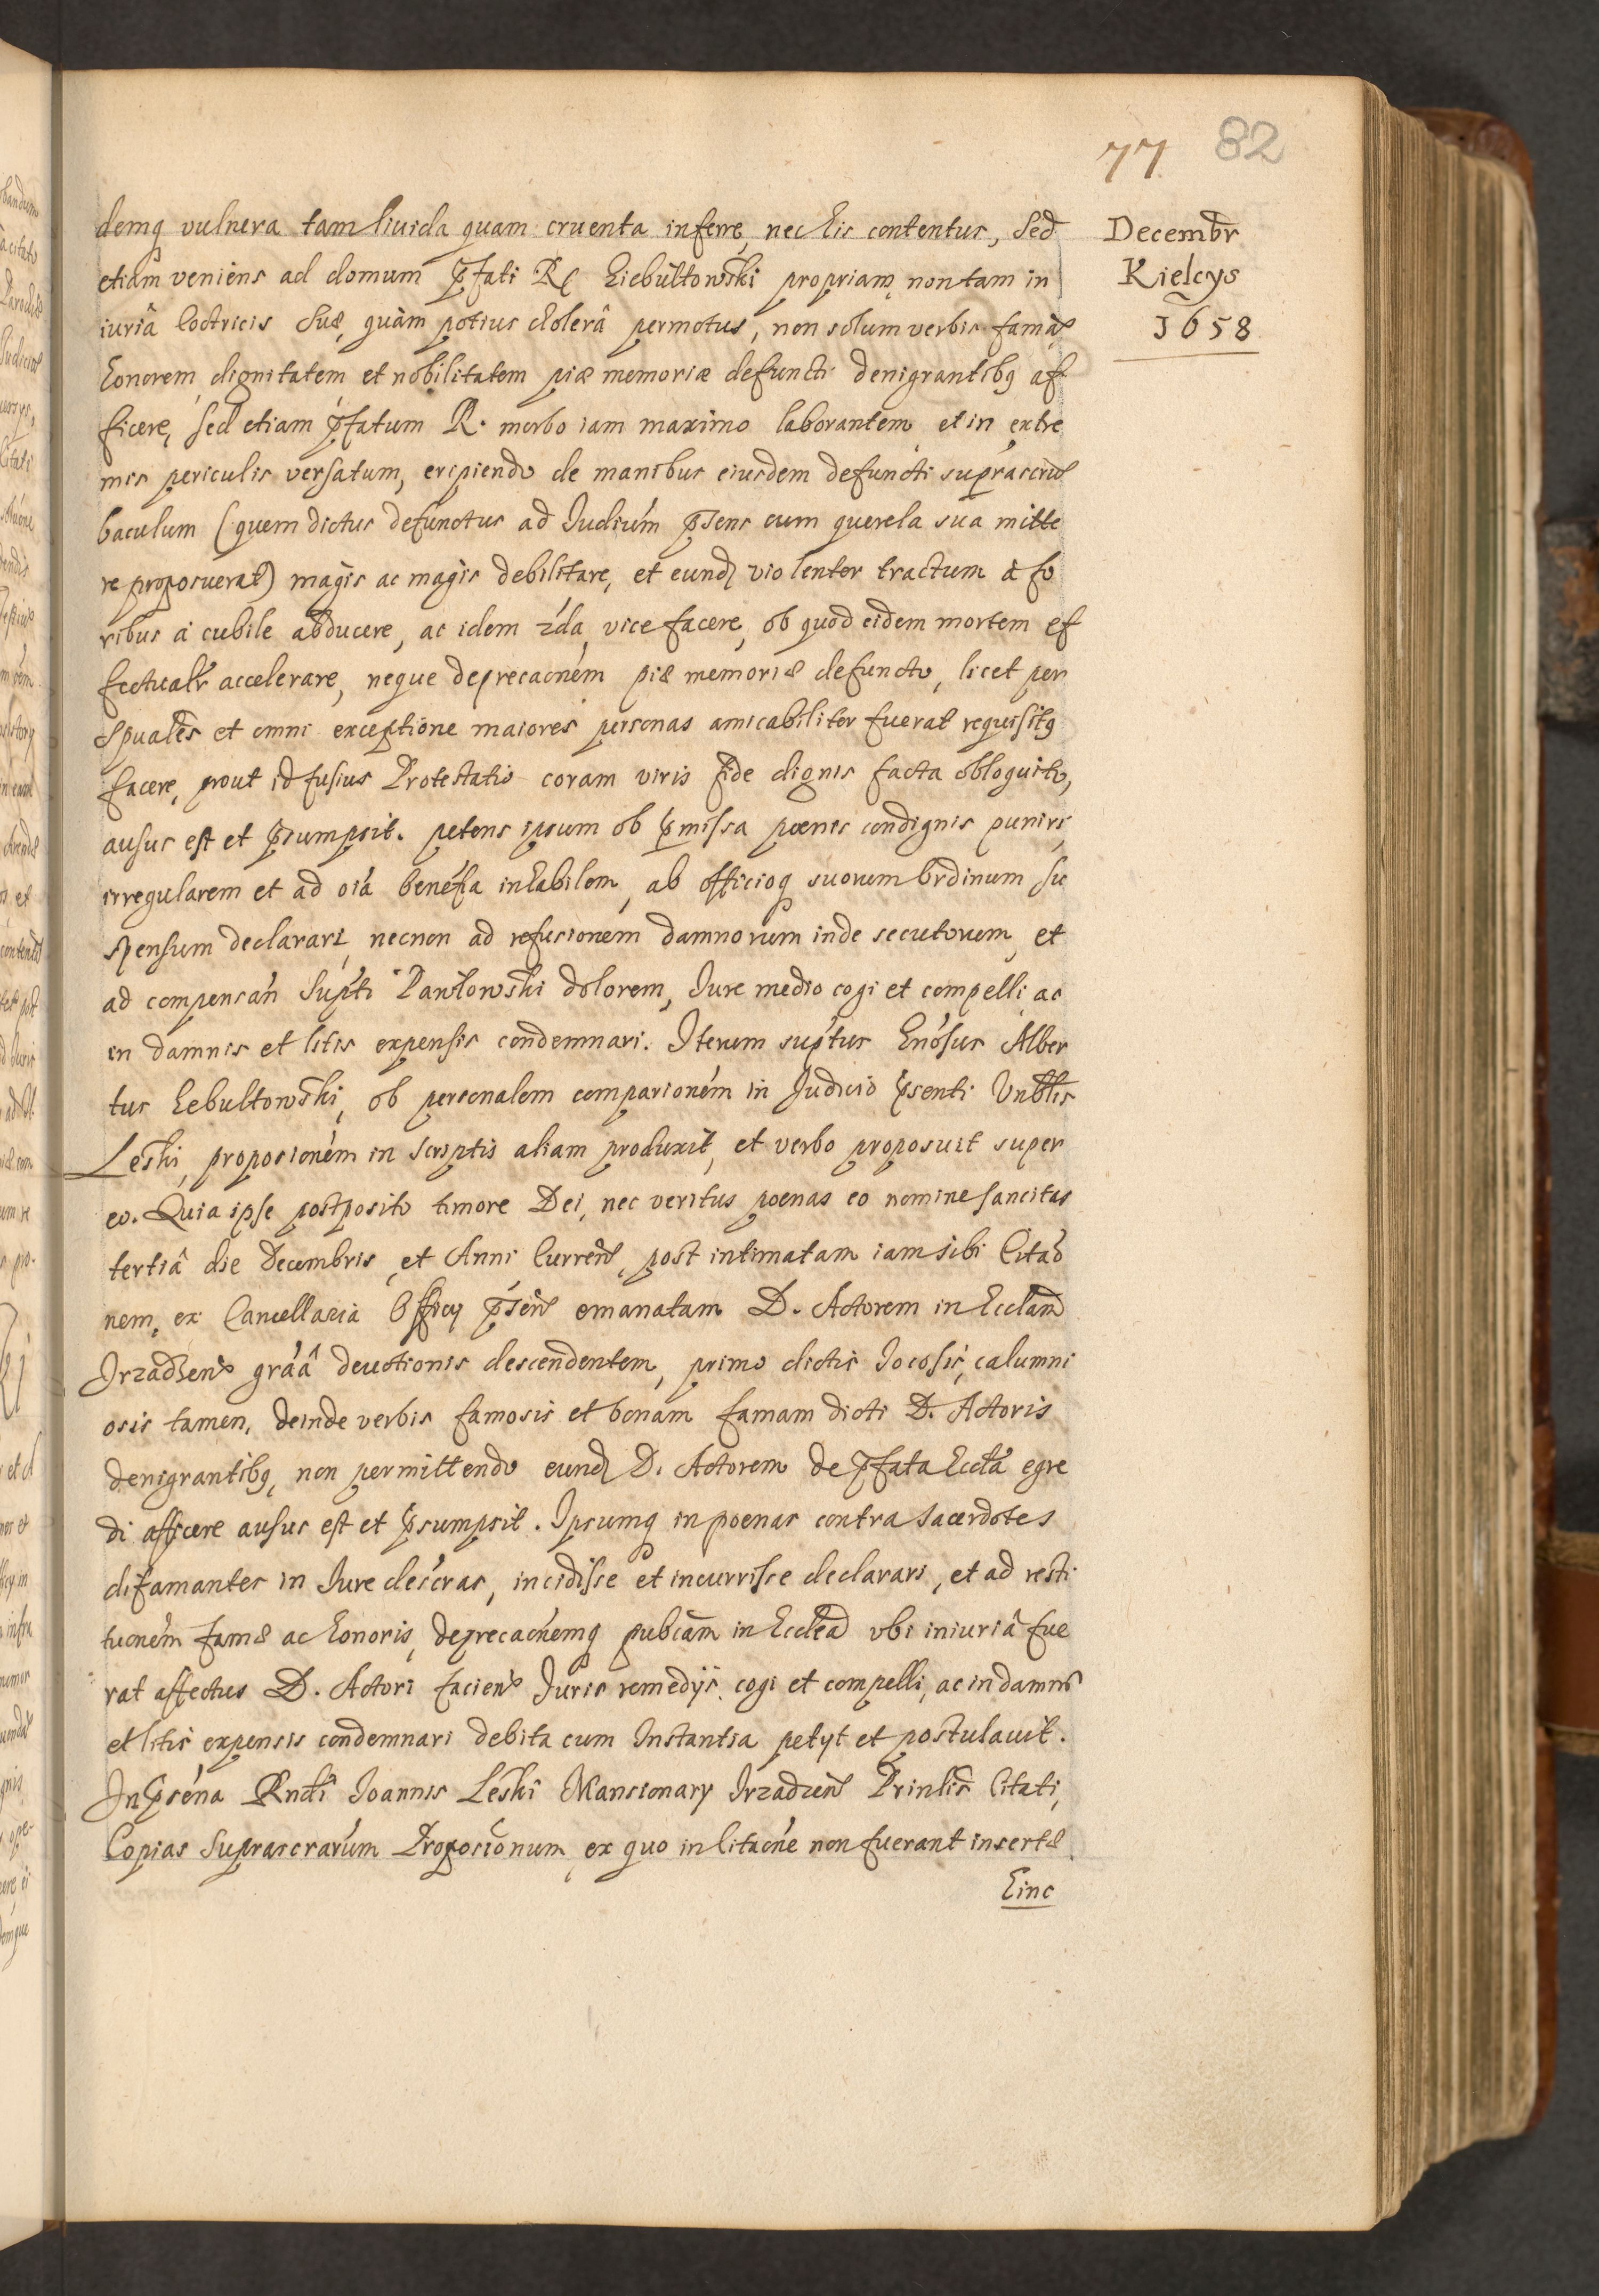 77 82
Decembr̃
Kielcys
1658
demq vulnera tam liuida quam cruenta inferre, nec his contentus, Sed
etiam veniens ad domum p̃fati R Liebultowski propriam non tam in
iuriâ Coctricis suæ, quàm potius cholerâ permotus, non solum verbis famã,
honorem, dignitatem et nobilitatem piæ memoriæ defuncti denigrantibq af
ficere, sed etiam p̃fatum R. morbo iam maximo laborantem et in extre
mis periculis versatum, eripiendo de manibus eiusdem defuncti suprascrip̃
baculum (quem dictus defunctus ad Iudiúm p̃sens cum querela sua mitte
re proposuerat) magis ac magis debilitare, et eund violenter tractum à fo
ribus à cubile abducere, ac idem 2da vice facere, ob quod eidem mortem ef
fectualr̃ accelerare, neque deprecacńem piæ memoriæ defuncto, licet per
Spuales̃ et omni exceptione maiores personas amicabiliter fuerat requisitq
facere, prout id fusius Protestatio coram viris fide dignis facta obloquitr,
ausus est et p̃sumpsit. petens ipsum ob p̃missa poenis condignis puniri,
irregularem et ad oiá benéfia inhabilem, ab officioq suorum Ordinum su
spensum declarari, necnon ad refusionem damnorum inde secutorum, et
ad compensań Supti Pawlowski dolorem, Iure medio cogi et compelli ac
in damnis et litis expensis condemnari. Iterum suptus Gnósus Alber
tus Lebultowski, ob personalem comparioném in Judicio p̃senti Vnblis
Leski, proposioném in scriptis aliam produxit, et verbo proposuit super
eo. Quia ipse postposito timore Dei, nec veritus poenas eo nomine sancitas
tertiâ die Decembris, et Anni Curren̄, post intimatam iam sibi Citaō
nem, ex Cancellaria Officy p̃sen̄ emanatam D. Actorem in Eccla̅m
Irzadzen̄ gráâ deuotionis descendentem, primo dictis Iocosis, calumni
osis tamen, deinde verbis famosis et bonam famam dicti D. Actoris
denigrantibq, non permittendo eund D. Actorem de p̃fata Eccla̅ egre
di afficere ausus est et p̃sumpsit. Ipsumq in poenas contra Sacerdotes
difamantes in Iure descras, incidisse et incurrisse declarari, et ad resti
tucńem famæ ac honoris, deprecacńemq pubcãm in Ecclea̅ vbi iniuriâ fue
rat affectus D. Actori facien̄ Iuris remedijs cogi et compelli, ac in damnis
et litis expensis condemnari debita cum Instantia petyt et postulauit.
In p̃séna Rndi Ioannis Leski Mansionary Irzadzen̄ Prinlis̃ Citati,
Copias Suprascrarúm Proposiõnum, ex quo in Citacńe non fuerant insertæ
hinc